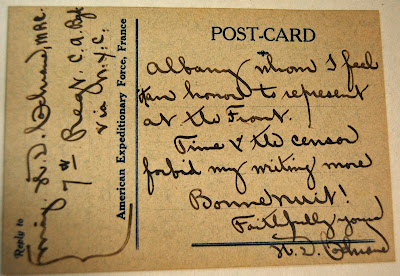 POST-CARD
Albany whom I feel
an honor to represent
at the Front.
Time & the censor
forbid my writing more
Bonne nuit!
Faithfully yours
Reply to
7th Regt. C.A.
via N.Y.C.
American Expeditionary Force, France